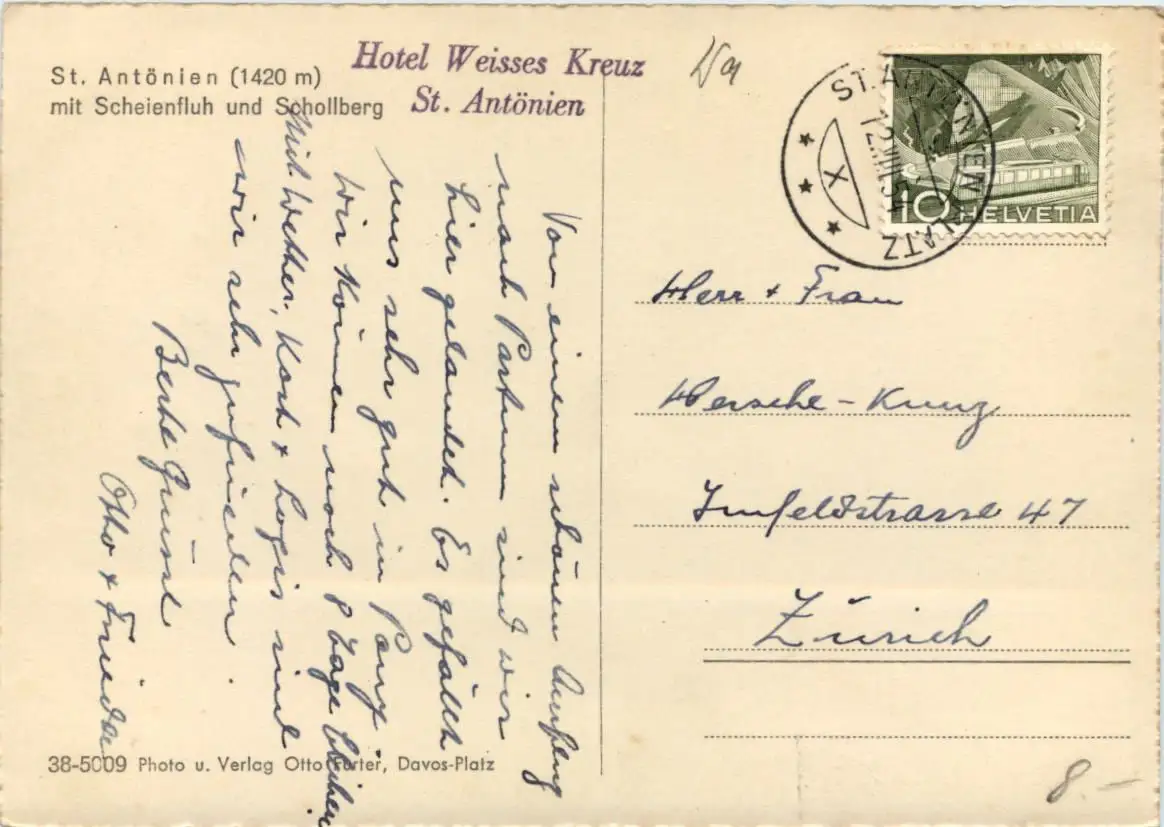 St. Antönien (1420 m)
mit Scheienfluh und Schollberg
Hotel Weisses Kreuz
St. Antönien
ST. ANTÖNIEN PLATZ
12.VII.54
X
10 HELVETIA
Von einem schönen Ausflug
nach Partnun sind wir
hier gelandet. Es gefällt
uns sehr gut in
Wir können noch 8 Tage bleiben.
Mit Wetter, Kost + Logis sind
wir sehr zufrieden.
Beste Grüsse
Otto + Frieda
Herr + Frau
Hersche-Kunz
Imfeldstrasse 47
Zürich
38-5009 Photo u. Verlag Otto Furter, Davos-Platz
8.—